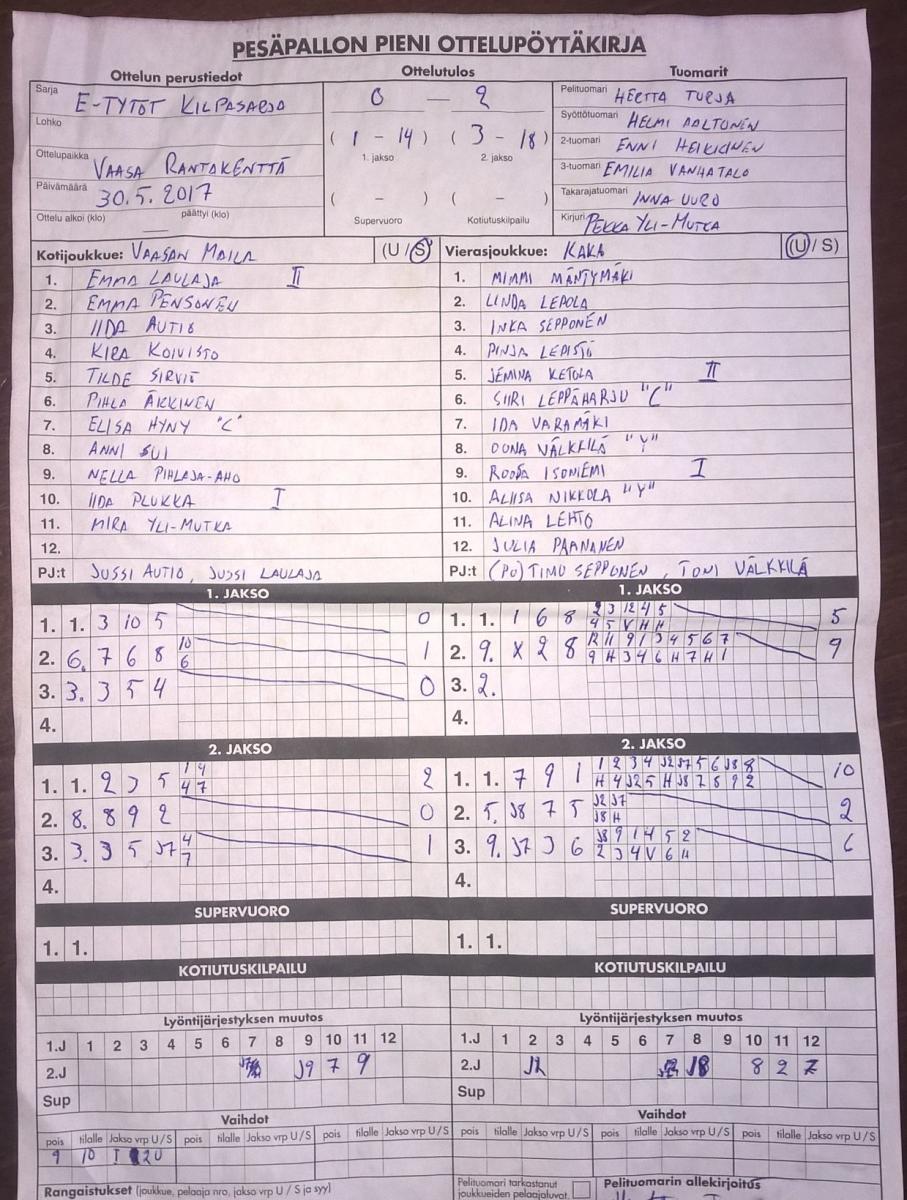 PESÄPALLON PIENI OTTELUPÖYTÄKIRJA
Ottelun perustiedot Ottelutulos Tuomarit
Sarja E-TYTÖT KILPASARJA
Lohko
Ottelupaikka VAASA RANTAKENTTÄ
Päivämäärä 30.5.2017
Ottelu alkoi (klo) päättyi (klo)
0 — 2
( 1 - 14 ) ( 3 - 18 )
1. jakso 2. jakso
( - ) ( - )
Supervuoro Kotiutuskilpailu
Pelituomari HERTTA TURJA
Syöttötuomari HELMI AALTONEN
2-tuomari ENNI HEIKKINEN
3-tuomari EMILIA VANHATALO
Takarajatuomari INNA UURO
Kirjuri PEKKA YLI-MUTKA
Kotijoukkue: VAASAN MAILA (U / S)
1. EMMA LAULAJA II
2. EMMA PENSONEN
3. IIDA AUTIO
4. KIRA KOIVISTO
5. TILDE SIRVIÖ
6. PIHLA ÄKKINEN
7. ELISA HYNY "C"
8. ANNI SUI
9. NELLA PIHLAJA-AHO
10. IIDA PLUKKA I
11. MIRA YLI-MUTKA
12.
PJ:t JUSSI AUTIO, JUSSI LAULAJA
Vierasjoukkue: KAKA (U / S)
1. MIMMI MÄNTYMÄKI
2. LINDA LEPOLA
3. INKA SEPPONEN
4. PINJA LEPISTÖ
5. JEMINA KETOLA II
6. SIIRI LEPPÄHARJU "C"
7. IDA VARAMÄKI
8. OONA VÄLKKILÄ "Y"
9. ROOSA ISONIEMI I
10. ALIISA NIKKOLA "Y"
11. ALINA LEHTO
12. JULIA PAANANEN
PJ:t (PO) TIMO SEPPONEN, TONI VÄLKKILÄ
1. JAKSO
1. 1. 3 10 5 0
2. 6. 7 6 8 10 1
6
3. 3. 3 5 4 0
4.
1. JAKSO
1. 1. 1 6 8 2 3 12 4 5 5
4 5 V H H
2. 9. X 2 8 12 11 9 1 3 4 5 6 7 9
9 H 3 4 6 H 7 H 1
3. 2.
4.
2. JAKSO
1. 1. 2 3 5 1 4 2
4 7
2. 8. 8 9 2 0
3. 3. 3 5 J7 4 1
7
4.
2. JAKSO
1. 1. 7 9 1 1 2 3 4 J2 J7 5 6 J8 8 10
H 4 J2 5 H J8 7 8 9 2
2. 5. J8 7 5 J2 J7 2
J8 H
3. 9. J7 3 6 J8 9 1 4 5 2 6
2 3 4 V 6 H
4.
SUPERVUORO SUPERVUORO
1. 1. 1. 1.
KOTIUTUSKILPAILU KOTIUTUSKILPAILU
Lyöntijärjestyksen muutos
1.J 1 2 3 4 5 6 7 8 9 10 11 12
2.J J9 7 9
Sup
Lyöntijärjestyksen muutos
1.J 1 2 3 4 5 6 7 8 9 10 11 12
2.J J2 J8 8 2 7
Sup
Vaihdot Vaihdot
pois tilalle Jakso vrp U / S pois tilalle Jakso vrp U / S pois tilalle Jakso vrp U / S
9 10 I 2U
pois tilalle Jakso vrp U / S pois tilalle Jakso vrp U / S pois tilalle Jakso vrp U / S
Rangaistukset (joukkue, pelaaja nro, jakso vrp U / S ja syy)
Pelituomari tarkastanut joukkueiden pelaajaluvat.
Pelituomarin allekirjoitus